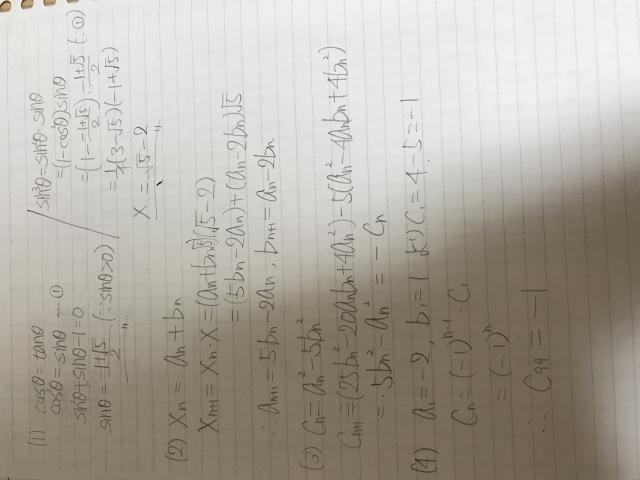 (1) cosθ = tanθ
cos²θ = sinθ …①
sin²θ + sinθ - 1 = 0
sinθ = (-1+√5)/2 (∵ sinθ>0)
sin³θ = sin²θ・sinθ
= (1-cos²θ)sinθ
= (1 - (-1+√5)/2)・(-1+√5)/2 (∵①)
= 1/4(3-√5)(-1+√5)
X = √5 - 2
(2) Xn = an + bn
Xn+1 = Xn・X = (an+bn√5)(√5-2)
= (5bn-2an) + (an-2bn)√5
∴ an+1 = 5bn-2an, bn+1 = an-2bn
(3) Cn = an² - 5bn²
Cn+1 = (25bn² - 20anbn + 4an²) - 5(an² - 4anbn + 4bn²)
= 5bn² - an² = -Cn
(4) a1 = -2, b1 = 1 より C1 = 4-5 = -1
Cn = (-1)^(n-1)・C1
= (-1)^n
∴ C99 = -1